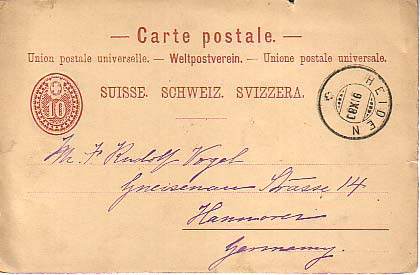 — Carte postale. —
Union postale universelle. — Weltpostverein. — Unione postale universale.
SUISSE. SCHWEIZ. SVIZZERA.
10
HEIDEN
Mr. F Rudolf Vogel
Gneisenau Strasse 14
Hannover
Germany.